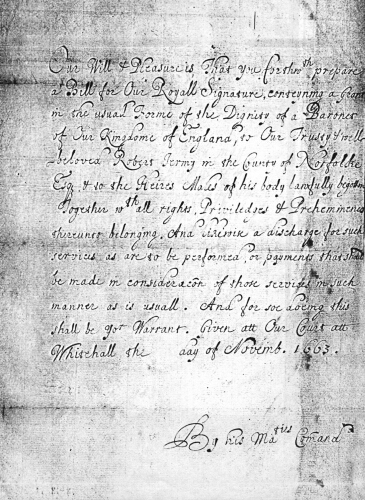 Our Will & Pleasure is That you forthwth prepare
a Bill for Our Royall Signature, conteyning a Grant
in the usuall Forme of the Dignity of a Baronet
of Our Kingdome of England, to Our Trusty & well
-beloved Robert Jermy in the County of Norfolke
Esq. & to the Heires Males of his body lawfully begotten
Together wth all rights, Priviledges & Prehemmences
thereunto belonging. And likewise a discharge for such
services as are to be performed, or payments that should
be made in consideracon of those services in such
manner as is usuall. And for soe doeing this
shall be yor Warrant. Given att Our Court att
Whitehall the day of Novemb. 1663.
By his Maties Comand